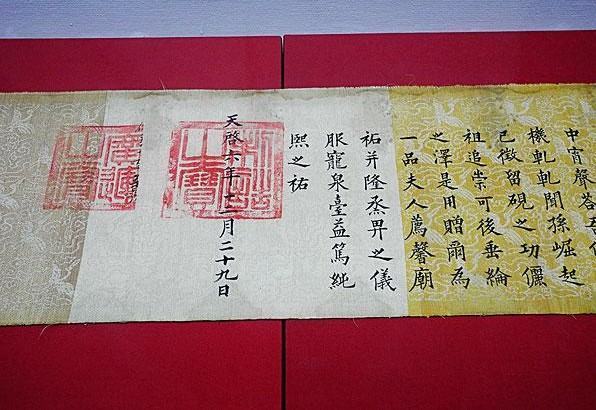 中宵聲荅吾
機軋軋聞孫崛起
已徵留硯之功儷
祖追崇可後垂綸
之澤是用贈爾為
一品夫人薦馨廟
祏并隆烝畀之儀
服寵泉臺益篤純
熙之祐
天啓六年十一月二十九日
之寶